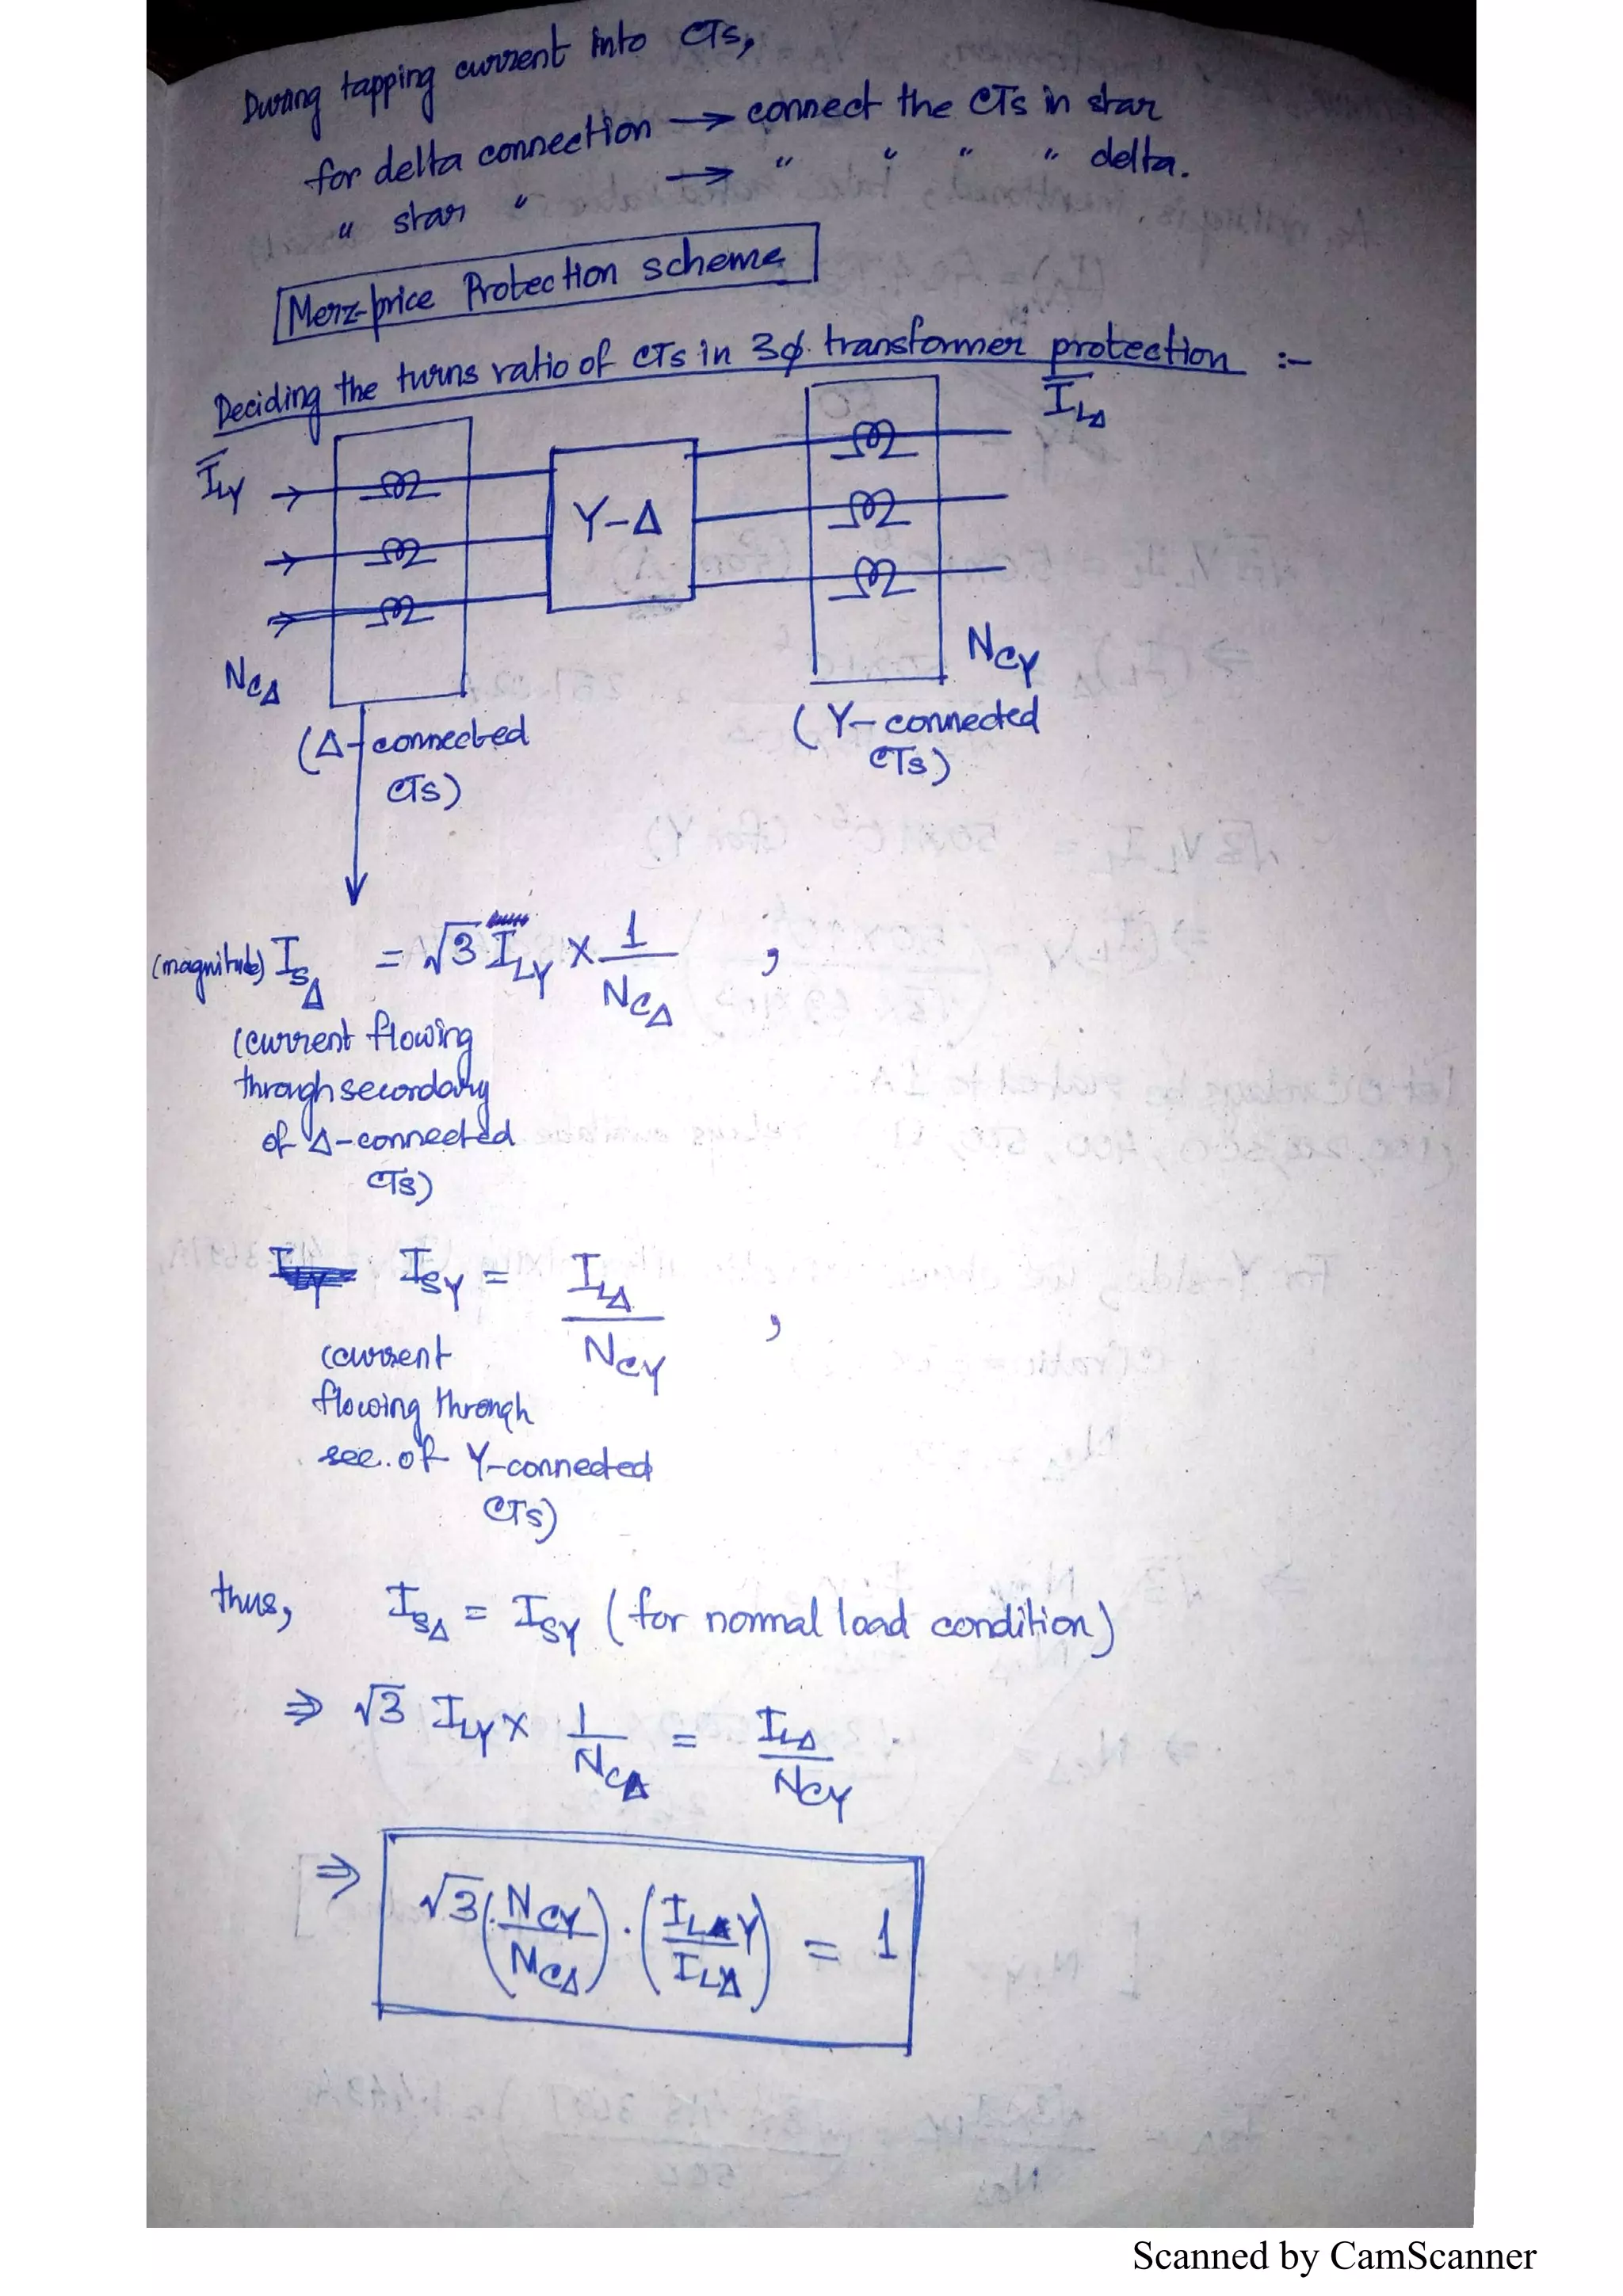 During tapping current into CTs,
for delta connection → connect the CTs in star
" star " → " " " " delta.
Merz-price Protection scheme
Deciding the turns ratio of CTs in 3ϕ transformer protection :-
I̅_LY
I̅_LΔ
Y-Δ
N_CΔ
N_CY
(Δ-connected
CTs)
(Y-connected
CTs)
(magnitude) I_SΔ = √3 I_LY × 1/N_CΔ ,
(current flowing
through secondary
of Δ-connected
CTs)
I_SY = I_LΔ/N_CY ,
(current
flowing through
sec. of Y-connected
CTs)
thus, I_SΔ = I_SY (for normal load condition)
⇒ √3 I_LY × 1/N_CΔ = I_LΔ/N_CY
⇒ √3 (N_CY/N_CΔ) · (I_LY/I_LΔ) = 1
Scanned by CamScanner